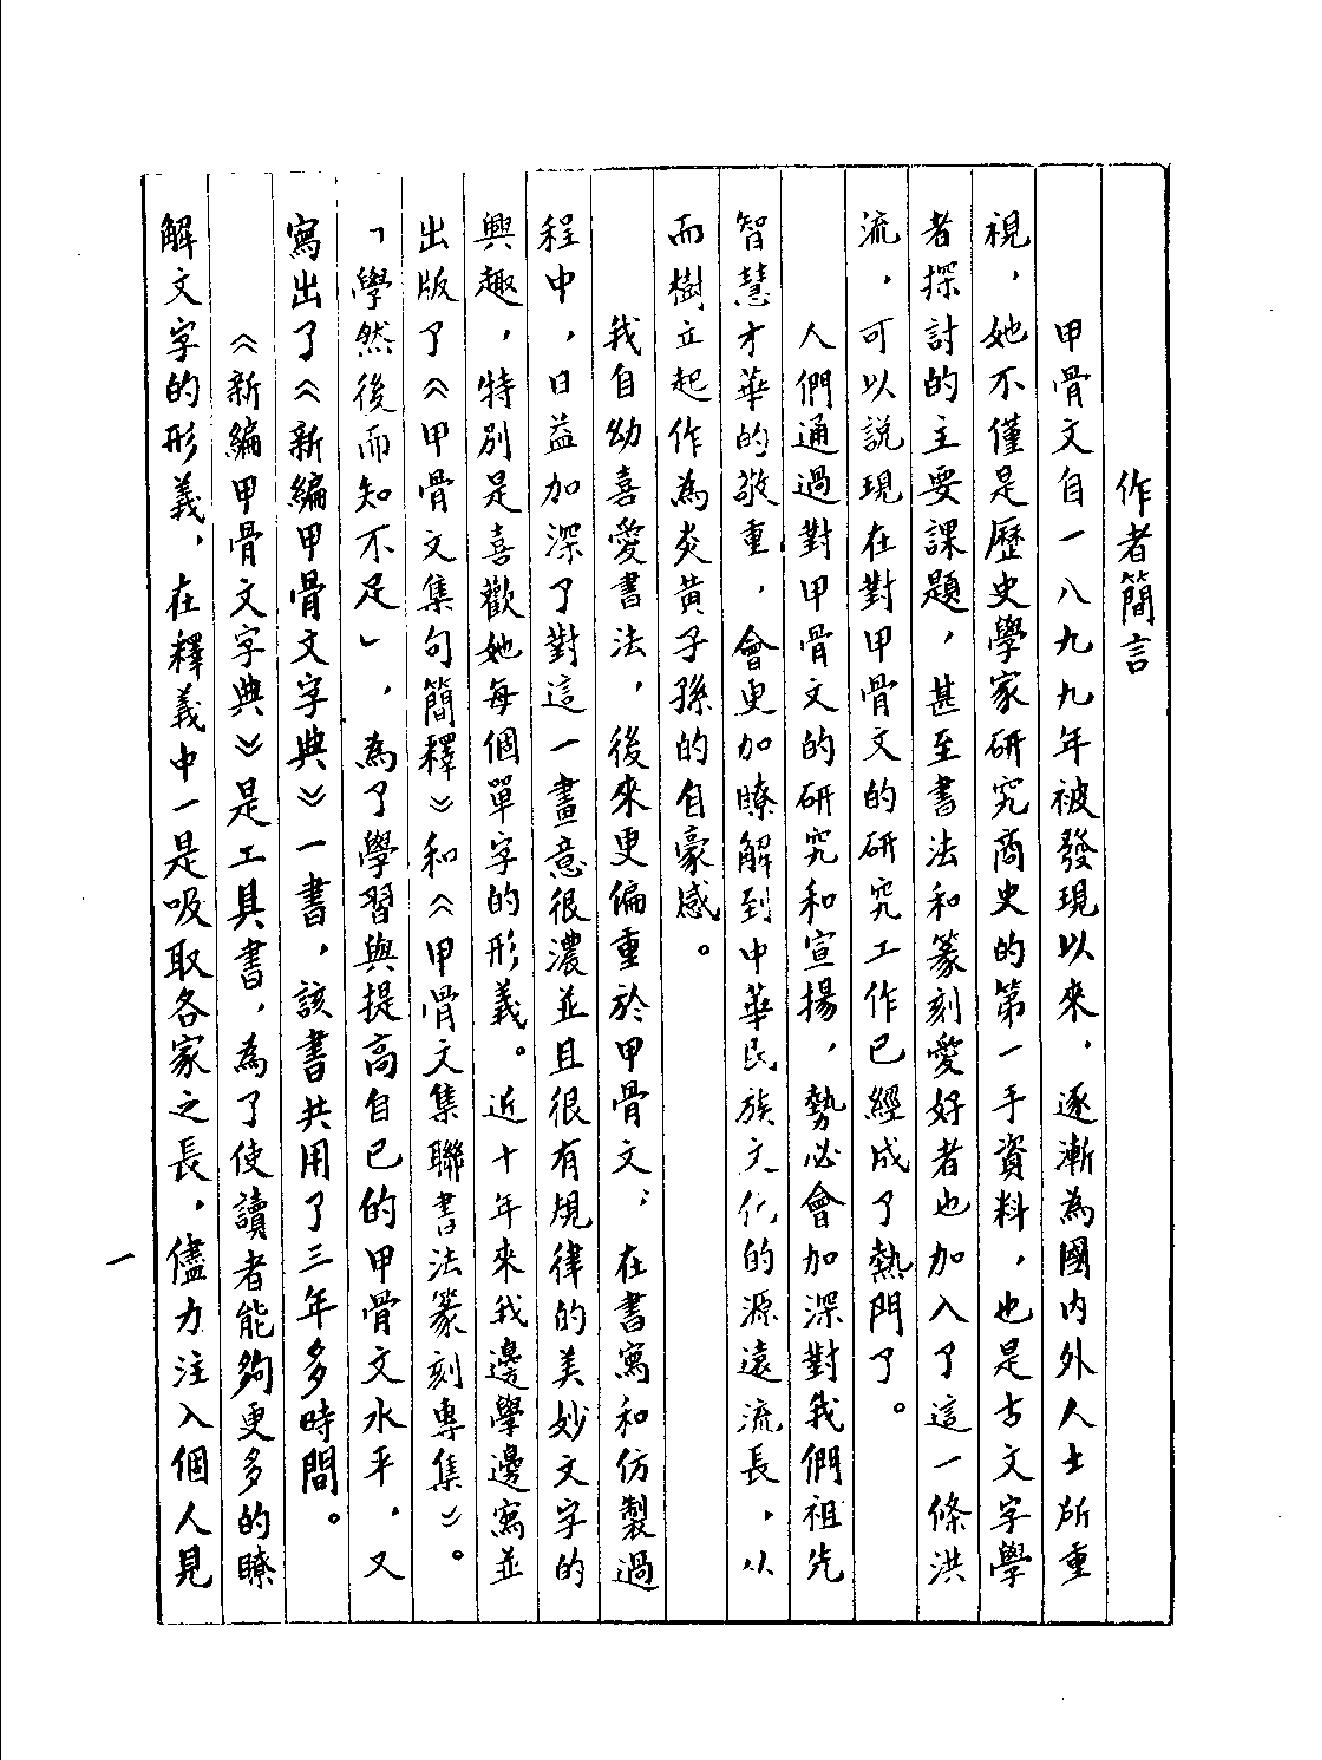 作者簡言
甲骨文自一八九九年被發現以來，逐漸為國內外人士所重
視，她不僅是歷史學家研究商史的第一手資料，也是古文字學
者探討的主要課題，甚至書法和篆刻愛好者也加入了這一條洪
流，可以說現在對甲骨文的研究工作已經成了熱門了。
人們通過對甲骨文的研究和宣揚，勢必會加深對我們祖先
智慧才華的敬重，會更加瞭解到中華民族文化的源遠流長，以
而樹立起作為炎黃子孫的自豪感。
我自幼喜愛書法，後來更偏重於甲骨文；在書寫和仿製過
程中，日益加深了對這一畫意很濃並且很有規律的美妙文字的
興趣，特別是喜歡她每個單字的形義。近十年來我邊學邊寫並
出版了《甲骨文集句簡釋》和《甲骨文集聯書法篆刻專集》。
「學然後而知不足」，為了學習與提高自已的甲骨文水平，又
寫出了《新編甲骨文字典》一書，該書共用了三年多時間。
《新編甲骨文字典》是工具書，為了使讀者能夠更多的瞭
解文字的形義，在釋義中一是吸取各家之長，儘力注入個人見
一